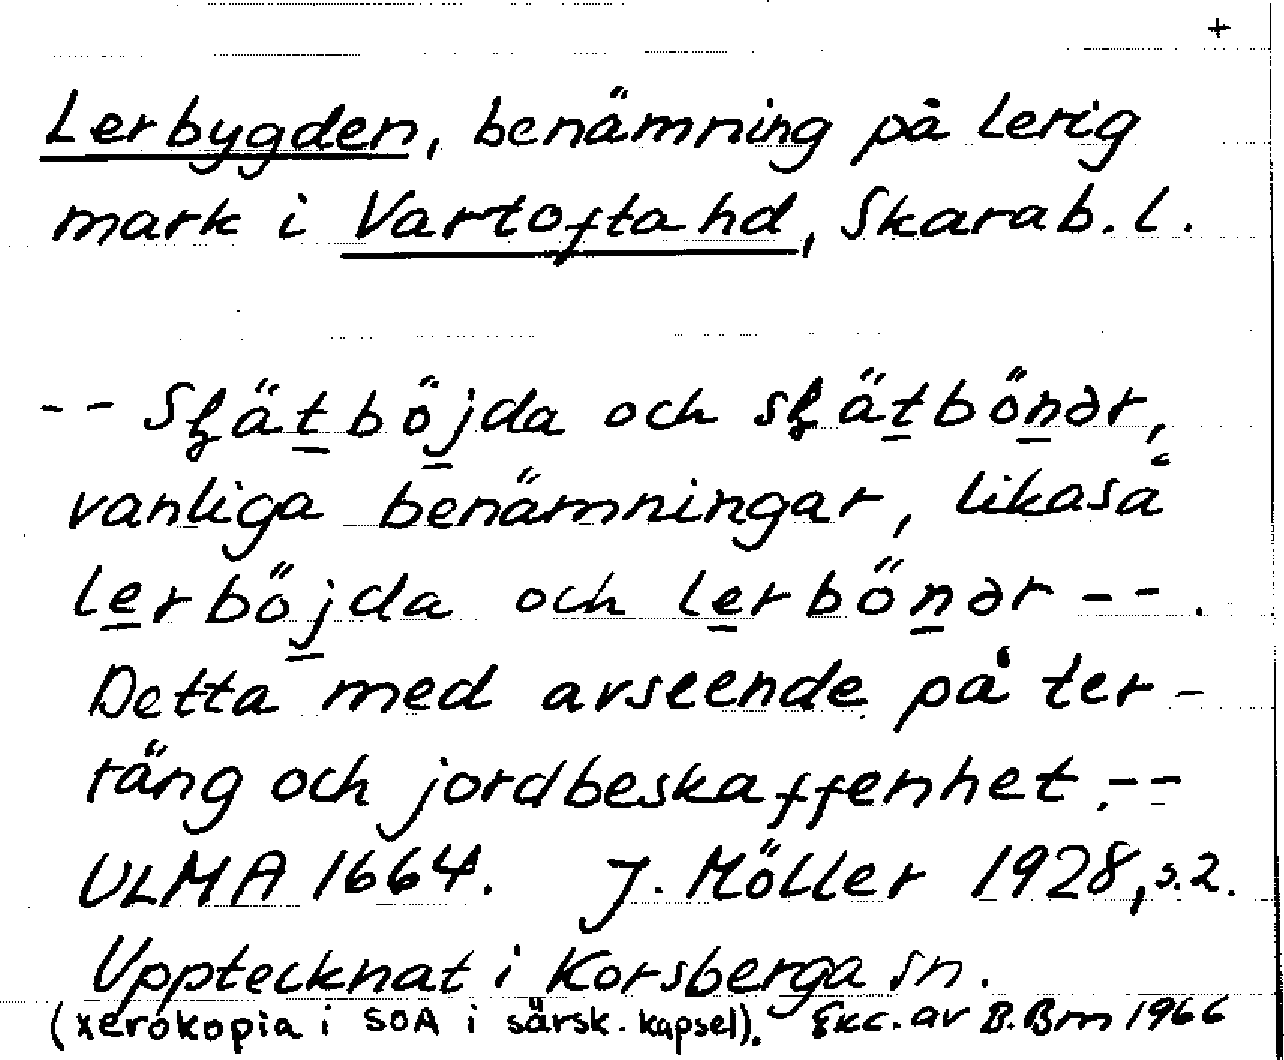 +
Lerbygden, benämning på lerig
mark i Vartofta hd, Skarab. l.
-- Slätböjda och slätböndr,
vanliga benämningar, likaså
lerböjda och lerböndr --.
Detta med avseende på ter-
räng och jordbeskaffenhet.--
ULMA 1664. J. Möller 1928, s.2.
Upptecknat i Korsberga sn.
(xerokopia i SOA i särsk. kapsel). Exc. av B. Bm 1966